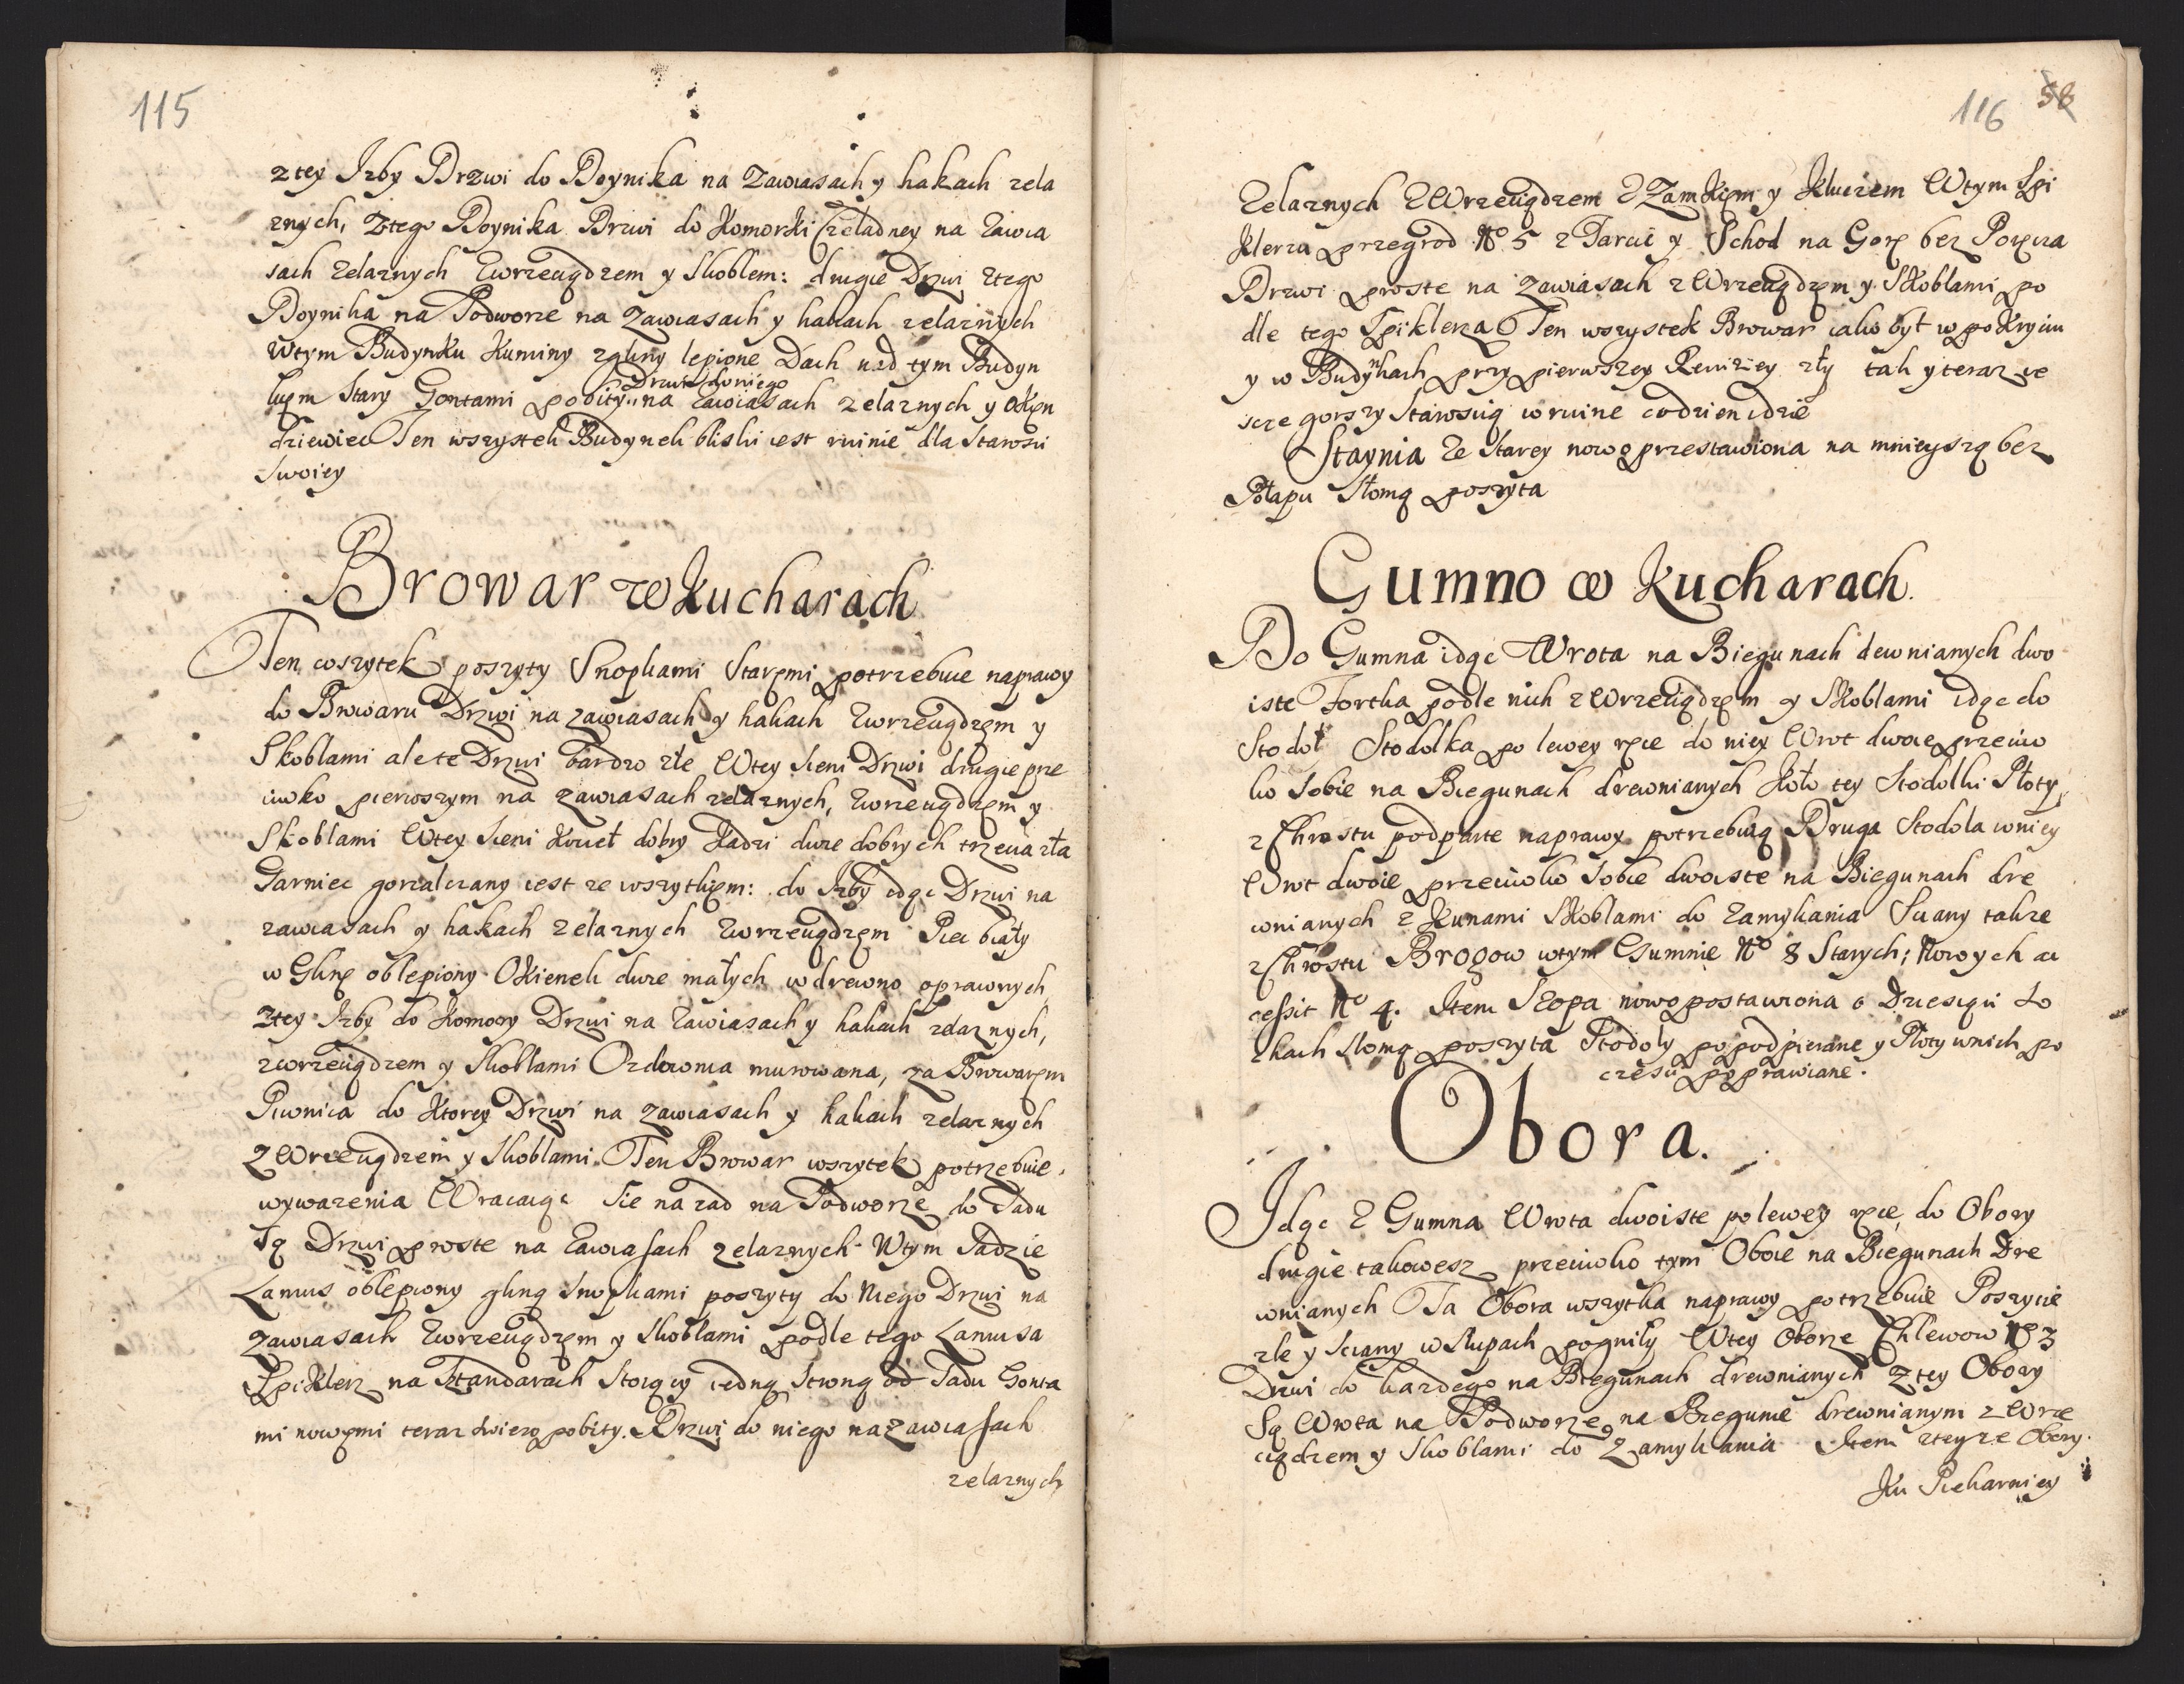 115
z tey Izby Drzwi do Doynika na Zawiasach y hakach zela
znych, Z tego Doynika Drzwi do Komorki Czeladney na Zawia
sach Zelaznych Zwrzeciądzem y Skoblem: drugie Drzwi z tego
Doynika na Podworze na Zawiasach y hakach zelaznych
Wtym Budynku Kuminy z gliny lepione Dach nad tym Budyn
Drzwi do niego
kięm Stary Gontami pobity na Zawiasach zelaznych y Okięn
dziewięc Ten wszystek Budynek bliski iest ruinie dla Starosci
Swoiey
Browar w Kucharach
Ten wszytek poszyty Snopkami Staręmi potrzebuie naprawy
do Browaru Drzwi na zawiasach y hakach Zwrzeciądzęm y
Skoblami ale te Drzwi bardzo złe Wtey Sieni Drzwi drugie prze
ciwko pierwszym na zawiasach zelaznych, Zwrzeciądzęm y
Skoblami Wtey Sieni Kocieł dobry Kadzi dwie dobrych trzecia zła
Garniec gorzalczany iest ze wszytkięm: do Izby idąc Drzwi na
zawiasach y hakach zelaznych Zwrzeciądzęm Piec biały
w Glinę oblepiony Okienek dwie małych w drewno oprawnych,
Z tey Izby do Komory Drzwi na Zawiasach y hakach zelaznych,
zwrzeciądzem y Skoblami Ozdownia murowana, za Browaręm
Piwnica do Ktorey Drzwi na zawiasach y hakach zelaznych
Z Wrzeciądzem y Skoblami. Ten Browar wszytek potrzebuie
wywazenia Wracaiąc Sie na zad na Podworze do Sadu
Są Drzwi proste na Zawiasach zelaznych Wtym Sadzie
Lamus oblepiony gliną Snopkami poszyty do Niego Drzwi na
zawiasach Zwrzeciądzęm y Skoblami podle tego Lamusa
Spiklerz na Sztandarach Stoiący iedną Stroną od Sadu Gonta
mi nowęmi teraz swiezo pobity. Drzwi do niego na zawiasach
zelaznych
116 58
Zelaznych Z Wrzeciądzem Z Zamkięm y Kluczem Wtym Spi
klerzu przegrod No 5 z Tarcic y Schod na Gorę bez Poręcza
Drzwi proste na zawiasach z Wrzeciądzęm y Skoblami po
dle tego Spiklerza Ten wszystek Browar iako był w pokryciu
y w Budynkach przy pierwszey Rewiziey zły tak y teraz ie
szcze gorszy Staroscią w ruine codzien idzie
Staynia Ze Starey nowo przestawiona na mnieyszą bez
Połapu Słomą poszyta
Gumno w Kucharach.
Do Gumna idąc Wrota na Biegunach dewnianych dwo
iste Fortka podle nich z Wrzeciądzęm y Skoblami idąc do
Stodoł Stodolka po lewey ręce do niey Wrot dwoie przeciw
ko Sobie na Biegunach drewnianych Koło tey Stodolki Płoty,
z Chrostu podparte naprawy potrzebuią Druga Stodoła w niey
Wrot dwoie przeciwko Sobie dwoiste na Biegunach dre
wnianych z Kunami Skoblami do Zamykania Sciany takze
z Chrostu Brogow wtym Gumnie No 8 Starych; Nowych ac
cessit No 4. Item Szopa nowo postawiona o Dziesiąci So
chach Słomą poszyta Stodoły popodpierane y Płoty w nich po
częsci poprawiane.
Obora.
Idąc Z Gumna Wrota dwoiste po lewey ręce do Obory
drugie takowesz przeciwko tym Oboie na Biegunach Dre
wnianych Ta Obora wszytka naprawy potrzebuie Poszycie
złe y Sciany w Słupach pogniły Wtey Oborze Chlewow No 3
Drzwi do kazdego na Biegunach drewnianych Z tey Obory
Są Wrota na Podworze na Biegunie drewnianym z Wrze
ciądzem y Skoblami do Zamykania Item z teyze Obory
Ku Piekarniey